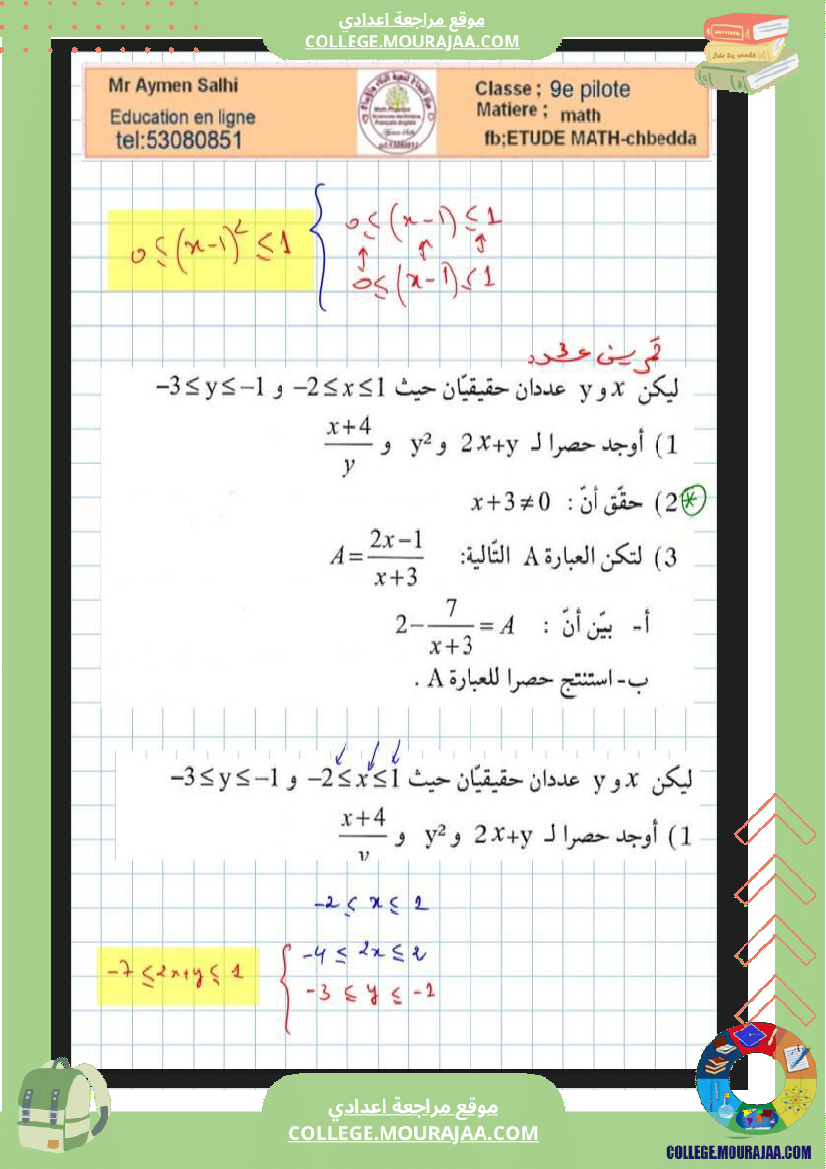 موقع مراجعة اعدادي
COLLEGE.MOURAJAA.COM
Mr Aymen Salhi
Education en ligne
tel:53080851
Classe ; 9e pilote
Matiere ; math
fb;ETUDE MATH-chbedda
0 ≤ (x-1)² ≤ 1
0 ≤ (x-1) ≤ 1
0 ≤ (x-1) ≤ 1
تمرين عدد 3
ليكن x و y عددان حقيقيّان حيث -2≤x≤1 و -3≤y≤-1
1) أوجد حصرا لـ 2x+y و y² و (x+4)/y
2) حقّق أنّ : x+3≠0
3) لتكن العبارة A التّالية: A=(2x-1)/(x+3)
أ- بيّن أنّ : 2-7/(x+3)=A
ب- استنتج حصرا للعبارة A .
ليكن x و y عددان حقيقيّان حيث -2≤x≤1 و -3≤y≤-1
1) أوجد حصرا لـ 2x+y و y² و (x+4)/y
-2 ≤ x ≤ 1
-4 ≤ 2x ≤ 2
-3 ≤ y ≤ -1
-7 ≤ 2x+y ≤ 1
موقع مراجعة اعدادي
COLLEGE.MOURAJAA.COM
COLLEGE.MOURAJAA.COM